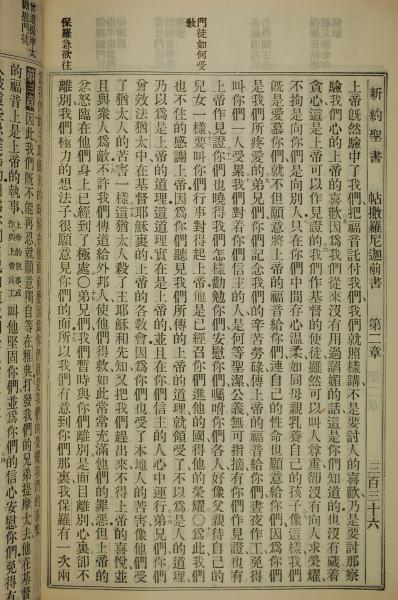 新約聖書 帖撒羅尼迦前書 第二章 三百三十六
上帝旣然驗中了我們把福音託付我們我們就照樣講不是要討人的喜歡乃是要討那察
驗我們心的上帝的喜歡因爲我們從來沒有用過諂媚的話這是你們知道的也沒有藏着
貪心這是上帝可以作見證的我們作基督的使徒雖然可以叫人尊重卻沒有向人求榮耀
不拘是向你們是向別人只在你們中間存心溫柔如同母親乳養自己的孩子像這樣我們
旣是愛慕你們就不但願意將上帝的福音給你們連自己的性命也願意給你們因爲你們
是我們所疼愛的弟兄們你們記念我們的辛苦勞碌傳上帝的福音給你們晝夜作工免得
叫你們一人受累我們對着你們信主的人是何等聖潔公義無可指摘有你們作見證也有
上帝作見證你們也曉得我們怎樣勸勉你們安慰你們囑咐你們各人好像父親待自己的
兒女一樣要叫你們行事對得起上帝他是已經召你們進他的國得他的榮耀○爲此我們
也不住的感謝上帝因爲你們聽見我們所傳的上帝的道理就領受了不以爲是人的道理
乃以爲是上帝的道理這道理實在是上帝的並且在你們信主的人心中運行弟兄們你們
曾效法猶太中在基督耶穌裏的上帝的各教會因爲你們也受了本地人的苦害像他們受
了猶太人的苦害一樣這猶太人殺了主耶穌和先知又把我們趕出來不得上帝的喜悅並
且與衆人爲敵不許我們傳道給外邦人使他們得救如此常常充滿他們的罪惡但上帝的
忿怒臨在他們身上已經到了極處○弟兄們我們暫時與你們離別是面目離別心裏卻不
離別我們極力的想法子很願意見你們的面所以我們有意到你們那裏我保羅有一次兩
門徒如何受教
保羅急欲往
第三章因此我們旣不能再忍就願意獨自等在雅典打發我們的兄弟提摩太去他在基督
的福音上是上帝的執事叫他堅固你們並爲你們的信心安慰你們免得有